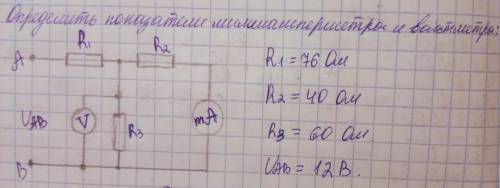 Определить показатели миллиамперметра и вольтметра:
R1 R2
A
R1 = 76 Ом
R2 = 40 Ом
UAB V R3 mA
R3 = 60 Ом
B
UAB = 12 В.